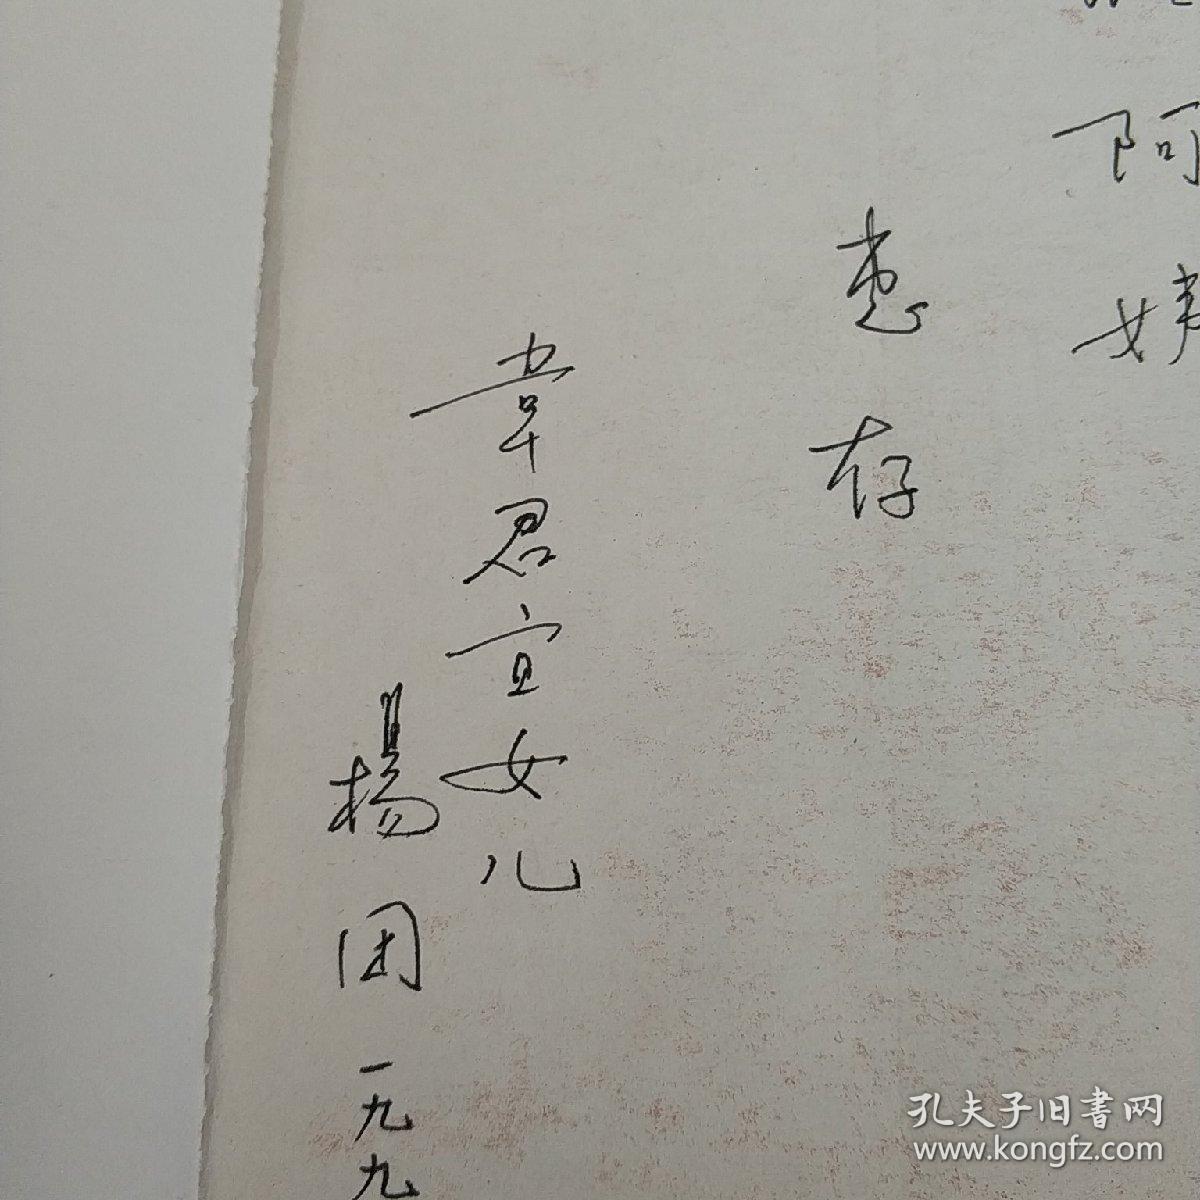 阿姨
惠存
韦君宜女儿
杨团
一九九
孔夫子旧書网
www.kongfz.com